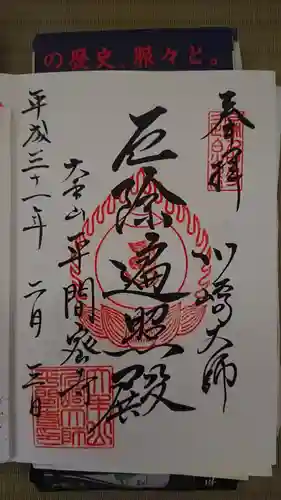 の歴史、脈々と。
奉拝
川崎大師
厄除遍照殿
大本山平間密寺
平成三十一年二月三日